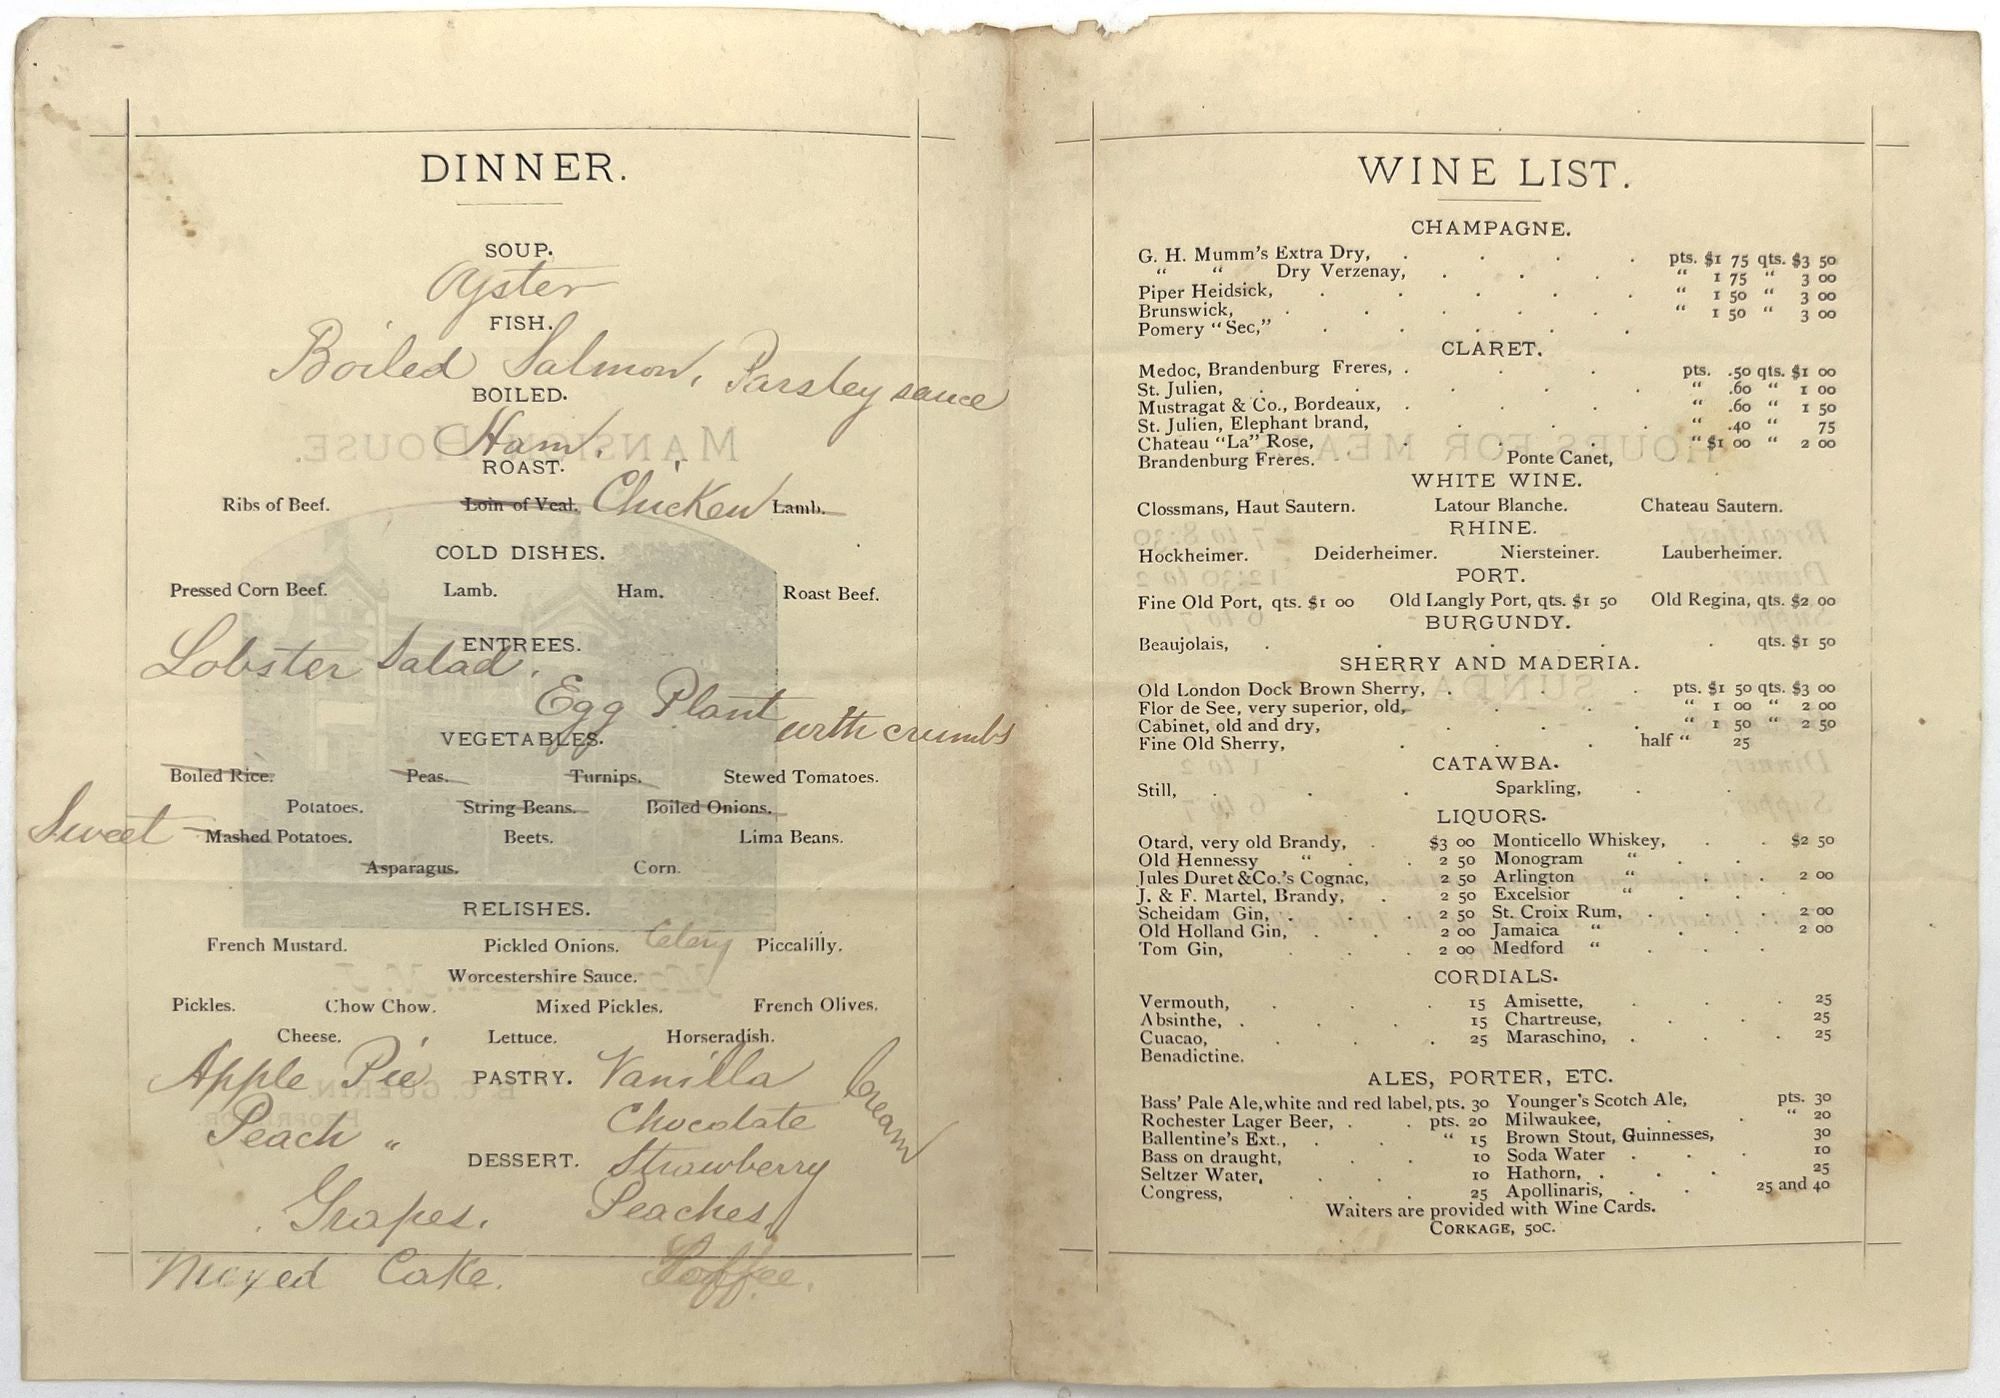 DINNER.
SOUP.
Oyster
FISH.
Boiled Salmon, Parsley sauce
BOILED.
Ham.
ROAST.
Ribs of Beef. Loin of Veal. Chicken Lamb.
COLD DISHES.
Pressed Corn Beef. Lamb. Ham. Roast Beef.
ENTREES.
Lobster Salad.
Egg Plant with crumbs
VEGETABLES.
Boiled Rice. Peas. Turnips. Stewed Tomatoes.
Potatoes. String Beans. Boiled Onions.
Sweet Mashed Potatoes. Beets. Lima Beans.
Asparagus. Corn.
RELISHES.
French Mustard. Pickled Onions. Celery Piccalilly.
Worcestershire Sauce.
Pickles. Chow Chow. Mixed Pickles. French Olives.
Cheese. Lettuce. Horseradish.
Apple Pie PASTRY. Vanilla cream
Peach " Chocolate
DESSERT. Strawberry
Grapes. Peaches
Mixed Cake. Coffee.
WINE LIST.
CHAMPAGNE.
G. H. Mumm's Extra Dry, pts. $1 75 qts. $3 50
" " Dry Verzenay, " 1 75 " 3 00
Piper Heidsick, " 1 50 " 3 00
Brunswick, " 1 50 " 3 00
Pomery "Sec,"
CLARET.
Medoc, Brandenburg Freres, pts. .50 qts. $1 00
St. Julien, " .60 " 1 00
Mustragat & Co., Bordeaux, " .60 " 1 50
St. Julien, Elephant brand, " .40 " 75
Chateau "La" Rose, " $1 00 " 2 00
Brandenburg Freres. Ponte Canet,
WHITE WINE.
Clossmans, Haut Sautern. Latour Blanche. Chateau Sautern.
RHINE.
Hockheimer. Deiderheimer. Niersteiner. Lauberheimer.
PORT.
Fine Old Port, qts. $1 00 Old Langly Port, qts. $1 50 Old Regina, qts. $2 00
BURGUNDY.
Beaujolais, qts. $1 50
SHERRY AND MADERIA.
Old London Dock Brown Sherry, pts. $1 50 qts. $3 00
Flor de See, very superior, old, " 1 00 " 2 00
Cabinet, old and dry, " 1 50 " 2 50
Fine Old Sherry, half " 25
CATAWBA.
Still, Sparkling,
LIQUORS.
Otard, very old Brandy, $3 00 Monticello Whiskey, $2 50
Old Hennessy " 2 50 Monogram "
Jules Duret & Co.'s Cognac, 2 50 Arlington " 2 00
J. & F. Martel, Brandy, 2 50 Excelsior "
Scheidam Gin, 2 50 St. Croix Rum, 2 00
Old Holland Gin, 2 00 Jamaica " 2 00
Tom Gin, 2 00 Medford "
CORDIALS.
Vermouth, 15 Amisette, 25
Absinthe, 15 Chartreuse, 25
Cuacao, 25 Maraschino, 25
Benadictine.
ALES, PORTER, ETC.
Bass' Pale Ale, white and red label, pts. 30 Younger's Scotch Ale, pts. 30
Rochester Lager Beer, pts. 20 Milwaukee, " 20
Ballentine's Ext., " 15 Brown Stout, Guinnesses, 30
Bass on draught, 10 Soda Water 10
Seltzer Water, 10 Hathorn, 25
Congress, 25 Apollinaris, 25 and 40
Waiters are provided with Wine Cards.
CORKAGE, 50C.